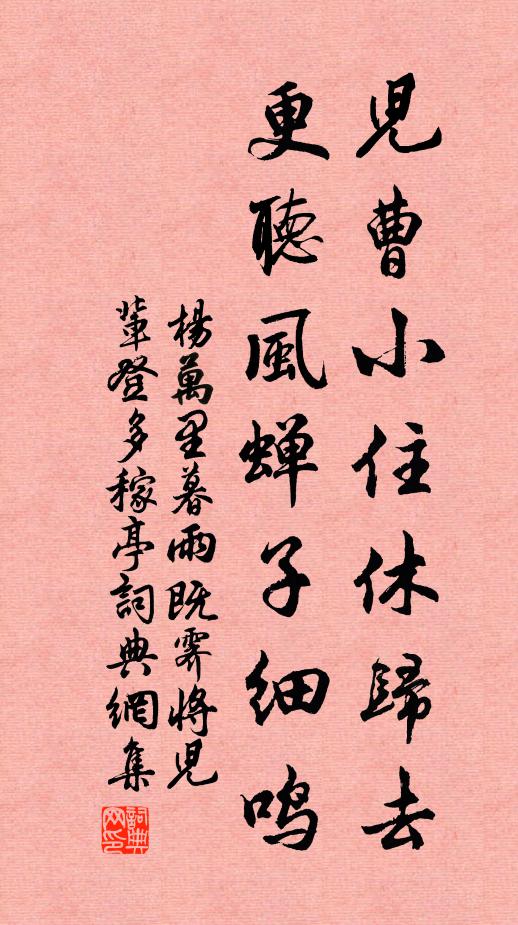 児曹小住休歸去
更聴風蝉子細鳴
楊萬里暮雨既霽將児
輩登多稼亭詞典網集
詞典
网印